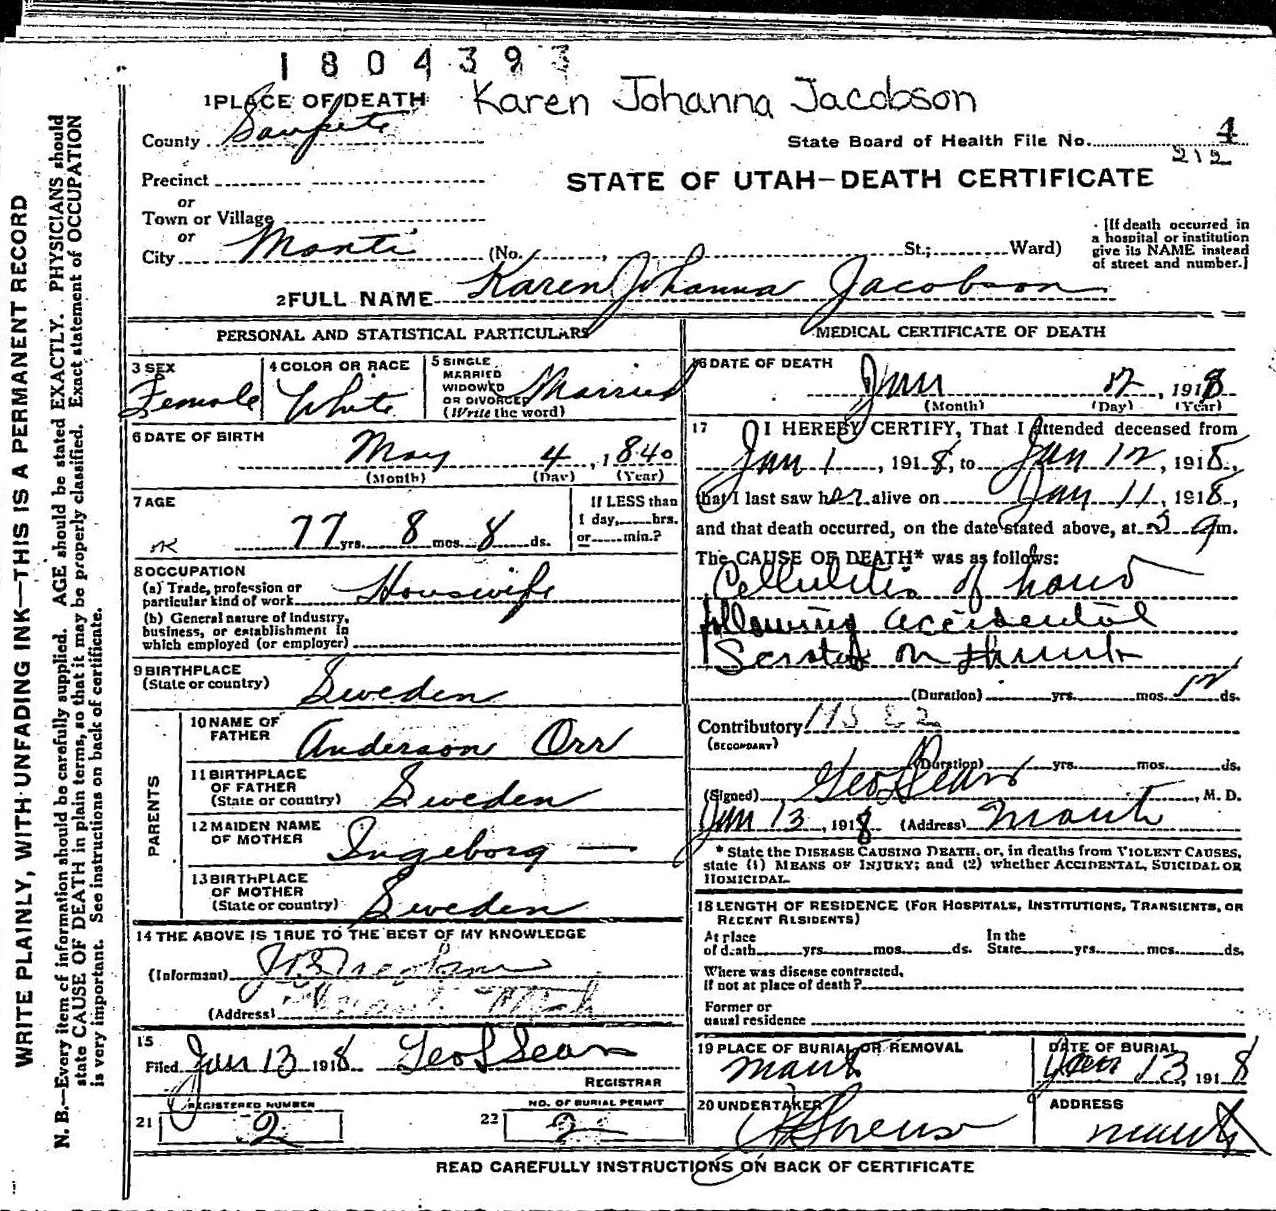 1804393
Karen Johanna Jacobson
1 PLACE OF DEATH
County Sanpete
State Board of Health File No. 4
212
Precinct
or
Town or Village
or
City Manti (No. , St.; Ward)
STATE OF UTAH—DEATH CERTIFICATE
[If death occurred in
a hospital or institution
give its NAME instead
of street and number.]
2 FULL NAME Karen Johanna Jacobson
PERSONAL AND STATISTICAL PARTICULARS
3 SEX
Female
4 COLOR OR RACE
White
5 SINGLE
MARRIED
WIDOWED
OR DIVORCED
(Write the word)
Married
6 DATE OF BIRTH
May 4, 1840
(Month) (Day) (Year)
7 AGE
77 yrs. 8 mos. 8 ds.
If LESS than
1 day, hrs.
or min.?
8 OCCUPATION
(a) Trade, profession or
particular kind of work Housewife
(b) General nature of Industry,
business, or establishment in
which employed (or employer)
9 BIRTHPLACE
(State or country) Sweden
PARENTS
10 NAME OF
FATHER Anderson Orr
11 BIRTHPLACE
OF FATHER
(State or country) Sweden
12 MAIDEN NAME
OF MOTHER Ingeborg —
13 BIRTHPLACE
OF MOTHER
(State or country) Sweden
14 THE ABOVE IS TRUE TO THE BEST OF MY KNOWLEDGE
(Informant)
(Address) Utah
15
Filed Jan 13 1918 Geo L Sears
REGISTRAR
21 REGISTERED NUMBER
2
22 NO. OF BURIAL PERMIT
2
MEDICAL CERTIFICATE OF DEATH
16 DATE OF DEATH
Jan 12, 1918
(Month) (Day) (Year)
17 I HEREBY CERTIFY, That I attended deceased from
Jan 1, 1918, to Jan 12, 1918,
that I last saw her alive on Jan 11, 1918,
and that death occurred, on the date stated above, at m.
The CAUSE OF DEATH* was as follows:
Cellulitis of hand
following accidental
Scratch on thumb
(Duration) yrs. mos. 12 ds.
Contributory
(SECONDARY)
(Duration) yrs. mos. ds.
(Signed) Geo L Sears, M. D.
Jan 13, 1918 (Address) Manti
* State the DISEASE CAUSING DEATH, or, in deaths from VIOLENT CAUSES,
state (1) MEANS OF INJURY; and (2) whether ACCIDENTAL, SUICIDAL OR
HOMICIDAL.
18 LENGTH OF RESIDENCE (FOR HOSPITALS, INSTITUTIONS, TRANSIENTS, OR
RECENT RESIDENTS)
At place
of death yrs. mos. ds. In the
State yrs. mos. ds.
Where was disease contracted,
if not at place of death?
Former or
usual residence
19 PLACE OF BURIAL OR REMOVAL
Manti
DATE OF BURIAL
Jan 13, 1918
20 UNDERTAKER
ADDRESS
Manti
READ CAREFULLY INSTRUCTIONS ON BACK OF CERTIFICATE
WRITE PLAINLY, WITH UNFADING INK—THIS IS A PERMANENT RECORD
N. B.—Every item of information should be carefully supplied. AGE should be stated EXACTLY. PHYSICIANS should
state CAUSE OF DEATH in plain terms, so that it may be properly classified. Exact statement of OCCUPATION
is very important. See instructions on back of certificate.